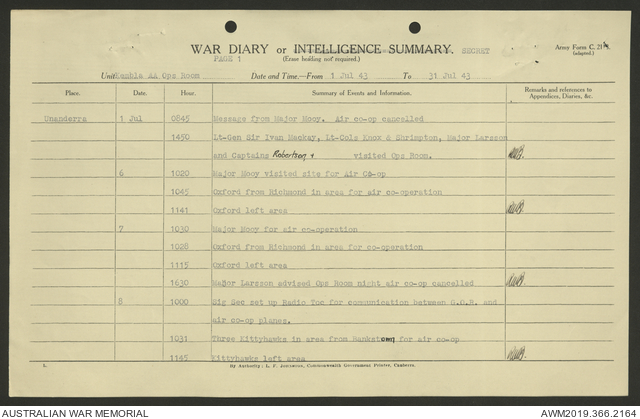 WAR DIARY or INTELLIGENCE SUMMARY. SECRET
PAGE 1 (Erase heading not required.)
Army Form C. 2118.
(adapted.)
Unit Kembla AA Ops Room Date and Time.—From 1 Jul 43 To 31 Jul 43
Place. Date. Hour. Summary of Events and Information. Remarks and references to
Appendices, Diaries, &c.
Unanderra 1 Jul 0845 Message from Major Mooy. Air co-op cancelled
1450 Lt-Gen Sir Ivan Mackay, Lt-Cols Knox & Shrimpton, Major Larsson
and Captains Robertson & visited Ops Room.
6 1020 Major Mooy visited site for Air Co-op
1045 Oxford from Richmond in area for air co-operation
1141 Oxford left area
7 1030 Major Mooy for air co-operation
1028 Oxford from Richmond in area for co-operation
1115 Oxford left area
1630 Major Larsson advised Ops Room night air co-op cancelled
8 1000 Sig Sec set up Radio Toc for comunication between G.O.R. and
air co-op planes.
1031 Three Kittyhawks in area from Bankstown for air co-op
1145 Kittyhawks left area
By Authority: L. F. Johnston, Commonwealth Government Printer, Canberra.
AUSTRALIAN WAR MEMORIAL AWM2019.366.2164